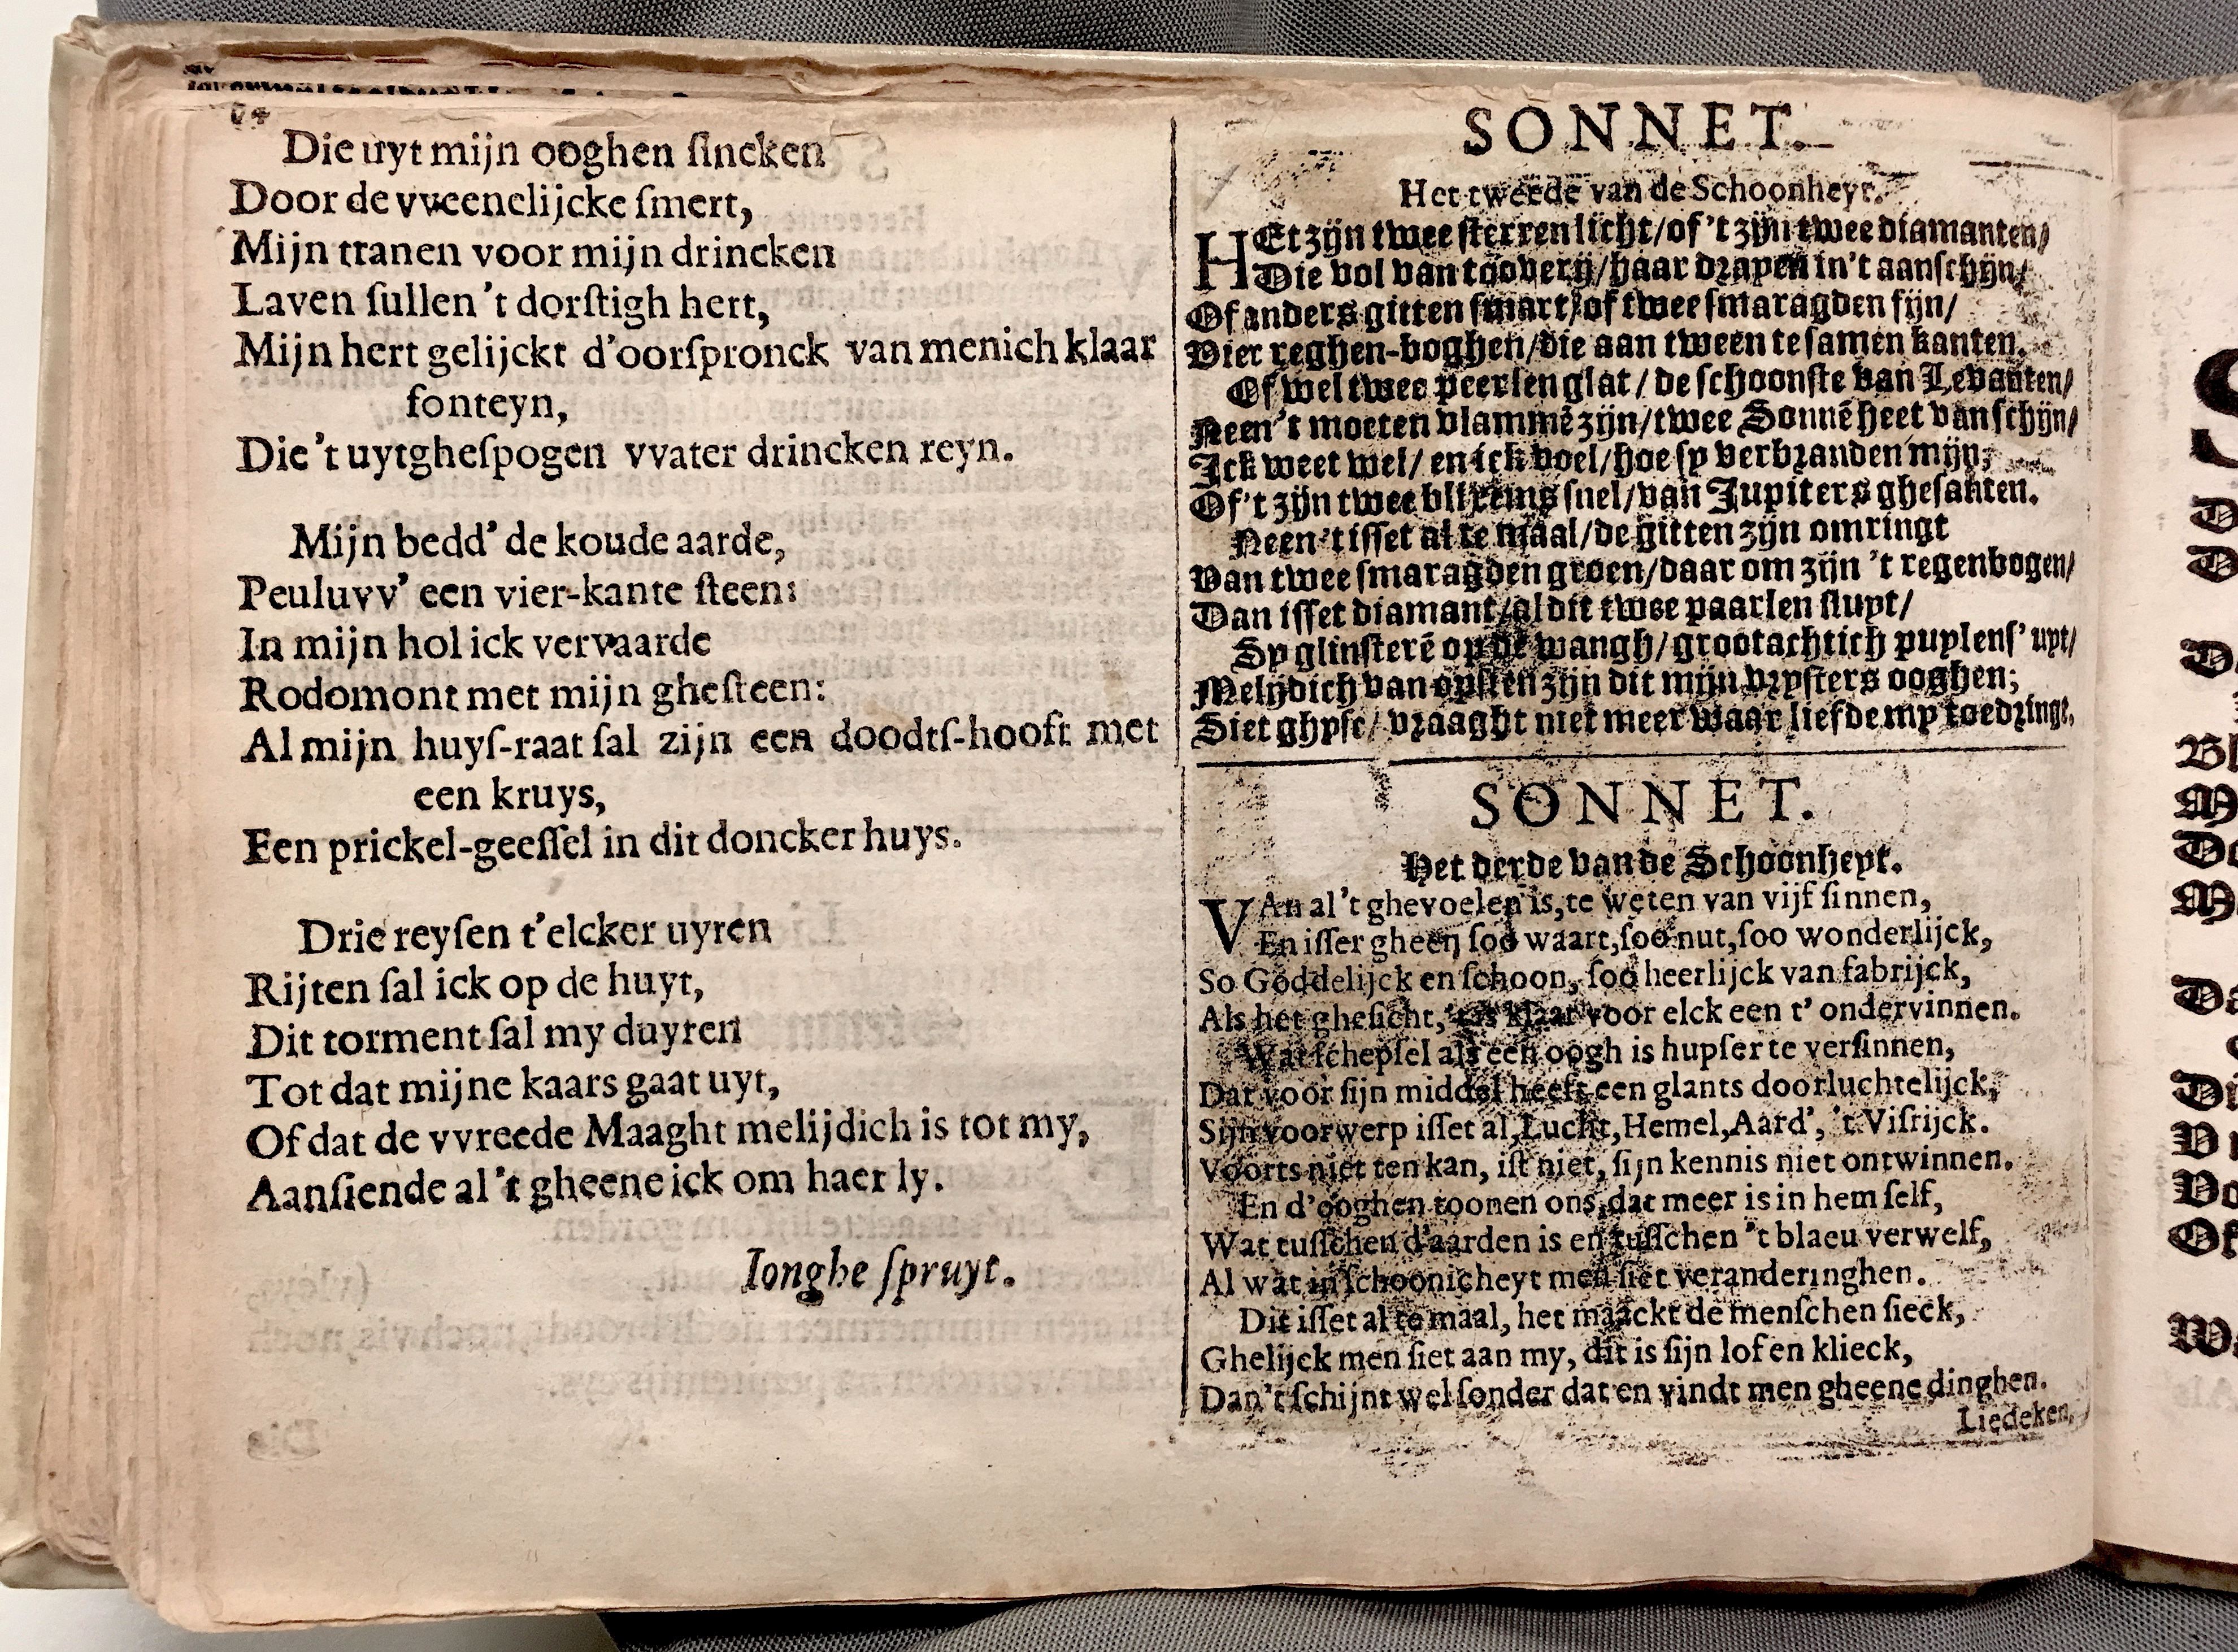 64
Die uyt mijn ooghen ſincken
Door de vveenelijcke ſmert,
Mijn tranen voor mijn drincken
Laven ſullen 't dorſtigh hert,
Mijn hert gelijckt d'oorſpronck van menich klaar
fonteyn,
Die 't uytgheſpogen vvater drincken reyn.
Mijn bedd' de koude aarde,
Peuluvv' een vier-kante ſteen:
In mijn hol ick vervaarde
Rodomont met mijn gheſteen:
Al mijn huyſ-raat ſal zijn een doodtſ-hooft met
een kruys,
Een prickel-geeſſel in dit doncker huys.
Drie reyſen t'elcker uyren
Rijten ſal ick op de huyt,
Dit torment ſal my duyren
Tot dat mijne kaars gaat uyt,
Of dat de vvreede Maaght melijdich is tot my,
Aanſiende al 't gheene ick om haer ly.
Ionghe ſpruyt.
SONNET.
Het tweede van de Schoonheyt.
HEt zijn twee ſterren licht/of 't zijn twee diamanten/
Die vol van tooverij/haar drayen in't aanſchijn/
Of anders gitten ſwart/of twee ſmaragden fijn/
Vier reghen-boghen/die aan tween te ſamen kanten.
Of wel twee peerlen glat/de ſchoonſte van Levanten/
Neen 't moeten vlammē zijn/twee Sonnē heet van ſchijn/
Ick weet wel/en ick voel/hoe ſy verbranden mijn;
Of 't zijn twee blixems ſnel/van Jupiters gheſanten.
Neen 't iſſet al te maal/de gitten zijn omringt
Van twee ſmaragden groen/daar om zijn 't regenbogen/
Dan iſſet diamant/al dit twee paarlen ſluyt/
Sy glinſterē op de wangh/grootachtich puylenſ' uyt/
Melijdich van opſten zijn dit mijn vryſters ooghen;
Siet ghyſe/vraaght niet meer waar liefde my toedringt.
SONNET.
Het derde van de Schoonheyt.
VAn al 't ghevoelen is, te weten van vijf ſinnen,
En iſſer gheen ſoo waart, ſoo nut, ſoo wonderlijck,
So Goddelijck en ſchoon, ſoo heerlijck van fabrijck,
Als het gheſicht, 't is klaar voor elck een t' ondervinnen.
Wat ſchepſel als een oogh is hupſer te verſinnen,
Dat voor ſijn middel heeft een glants doorluchtelijck,
Sijn voorwerp iſſet al, Lucht, Hemel, Aard', 't Viſrijck.
Voorts niet ten kan, iſt niet, ſijn kennis niet ontwinnen.
En d'ooghen toonen ons, dat meer is in hem ſelf,
Wat tuſſchen d'aarden is en tuſſchen 't blaeu verwelf,
Al wat in ſchoonicheyt men ſiet veranderinghen.
Dit iſſet al te maal, het maackt de menſchen ſieck,
Ghelijck men ſiet aan my, dit is ſijn lof en klieck,
Dan 't ſchijnt wel ſonder dat en vindt men gheene dinghen.
Liedeken,